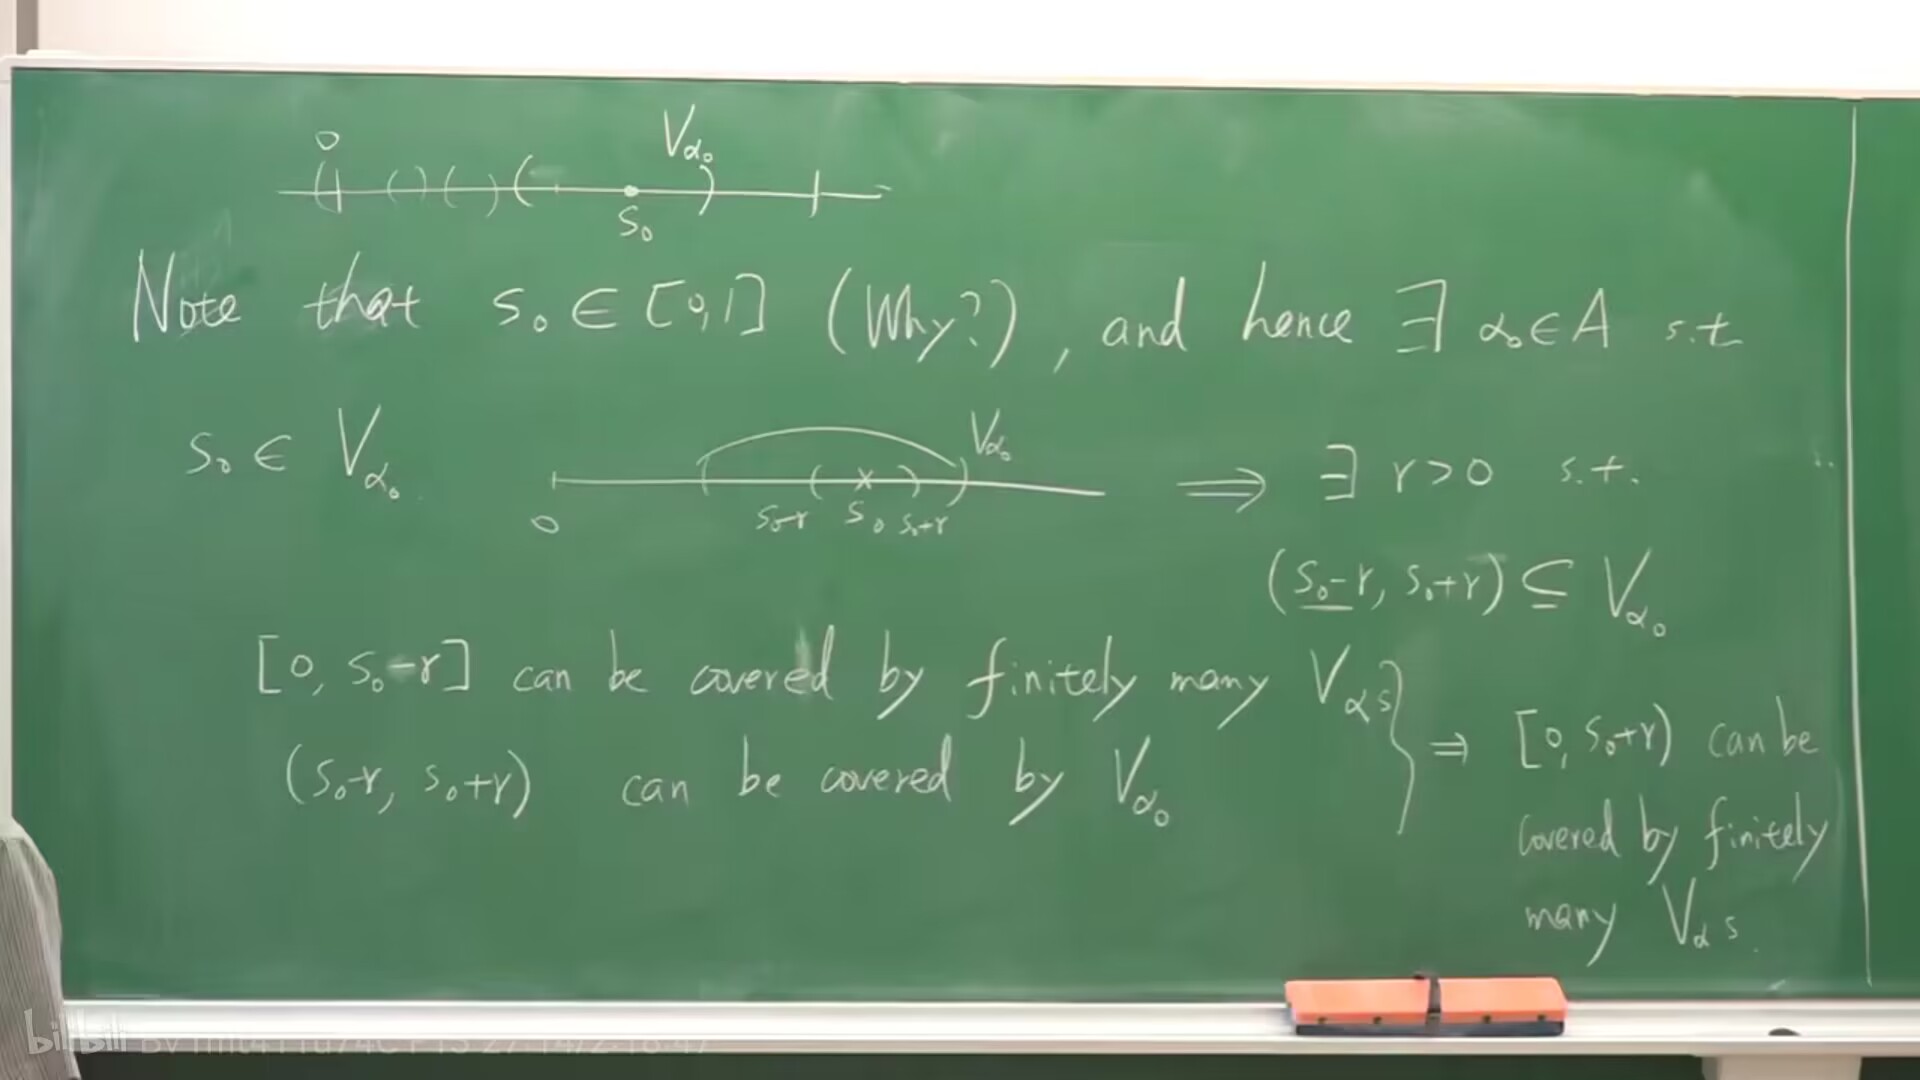 0 V_{α_0}
s_0
Note that s_0 ∈ [0,1] (Why?), and hence ∃ α_0 ∈ A s.t
s_0 ∈ V_{α_0} V_{α_0} ⟹ ∃ r>0 s.t.
0 s_0-r s_0 s_0+r
(s_0-r, s_0+r) ⊆ V_{α_0}
[0, s_0-r] can be covered by finitely many V_α s
(s_0-r, s_0+r) can be covered by V_{α_0}
⇒ [0, s_0+r) can be
covered by finitely
many V_α s.
bilibili